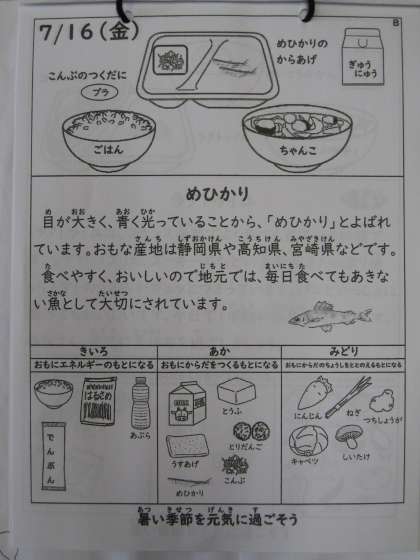 7/16(金)
8
めひかりの
からあげ
ぎゅう
にゅう
こんぶのつくだに
プラ
ごはん
ちゃんこ
めひかり
目が大きく、青く光っていることから、「めひかり」とよばれ
ています。おもな産地は静岡県や高知県、宮崎県などです。
食べやすく、おいしいので地元では、毎日食べてもあきな
い魚として大切にされています。
きいろ
あか
みどり
おもにエネルギーのもとになる
おもにからだをつくるもとになる
おもにからだのちょうしをととのえるもとになる
はるさめ
あぶら
でんぷん
とうふ
とりだんご
うすあげ
こんぶ
めひかり
にんじん
ねぎ
つちしょうが
キャベツ
しいたけ
暑い季節を元気に過ごそう